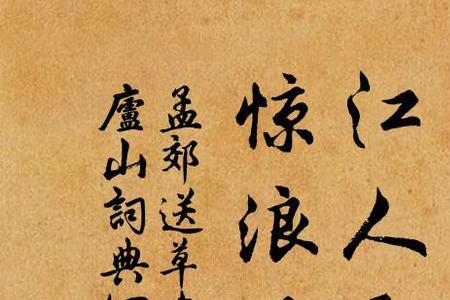 江人
惊浪
孟郊送草
廬山詞典